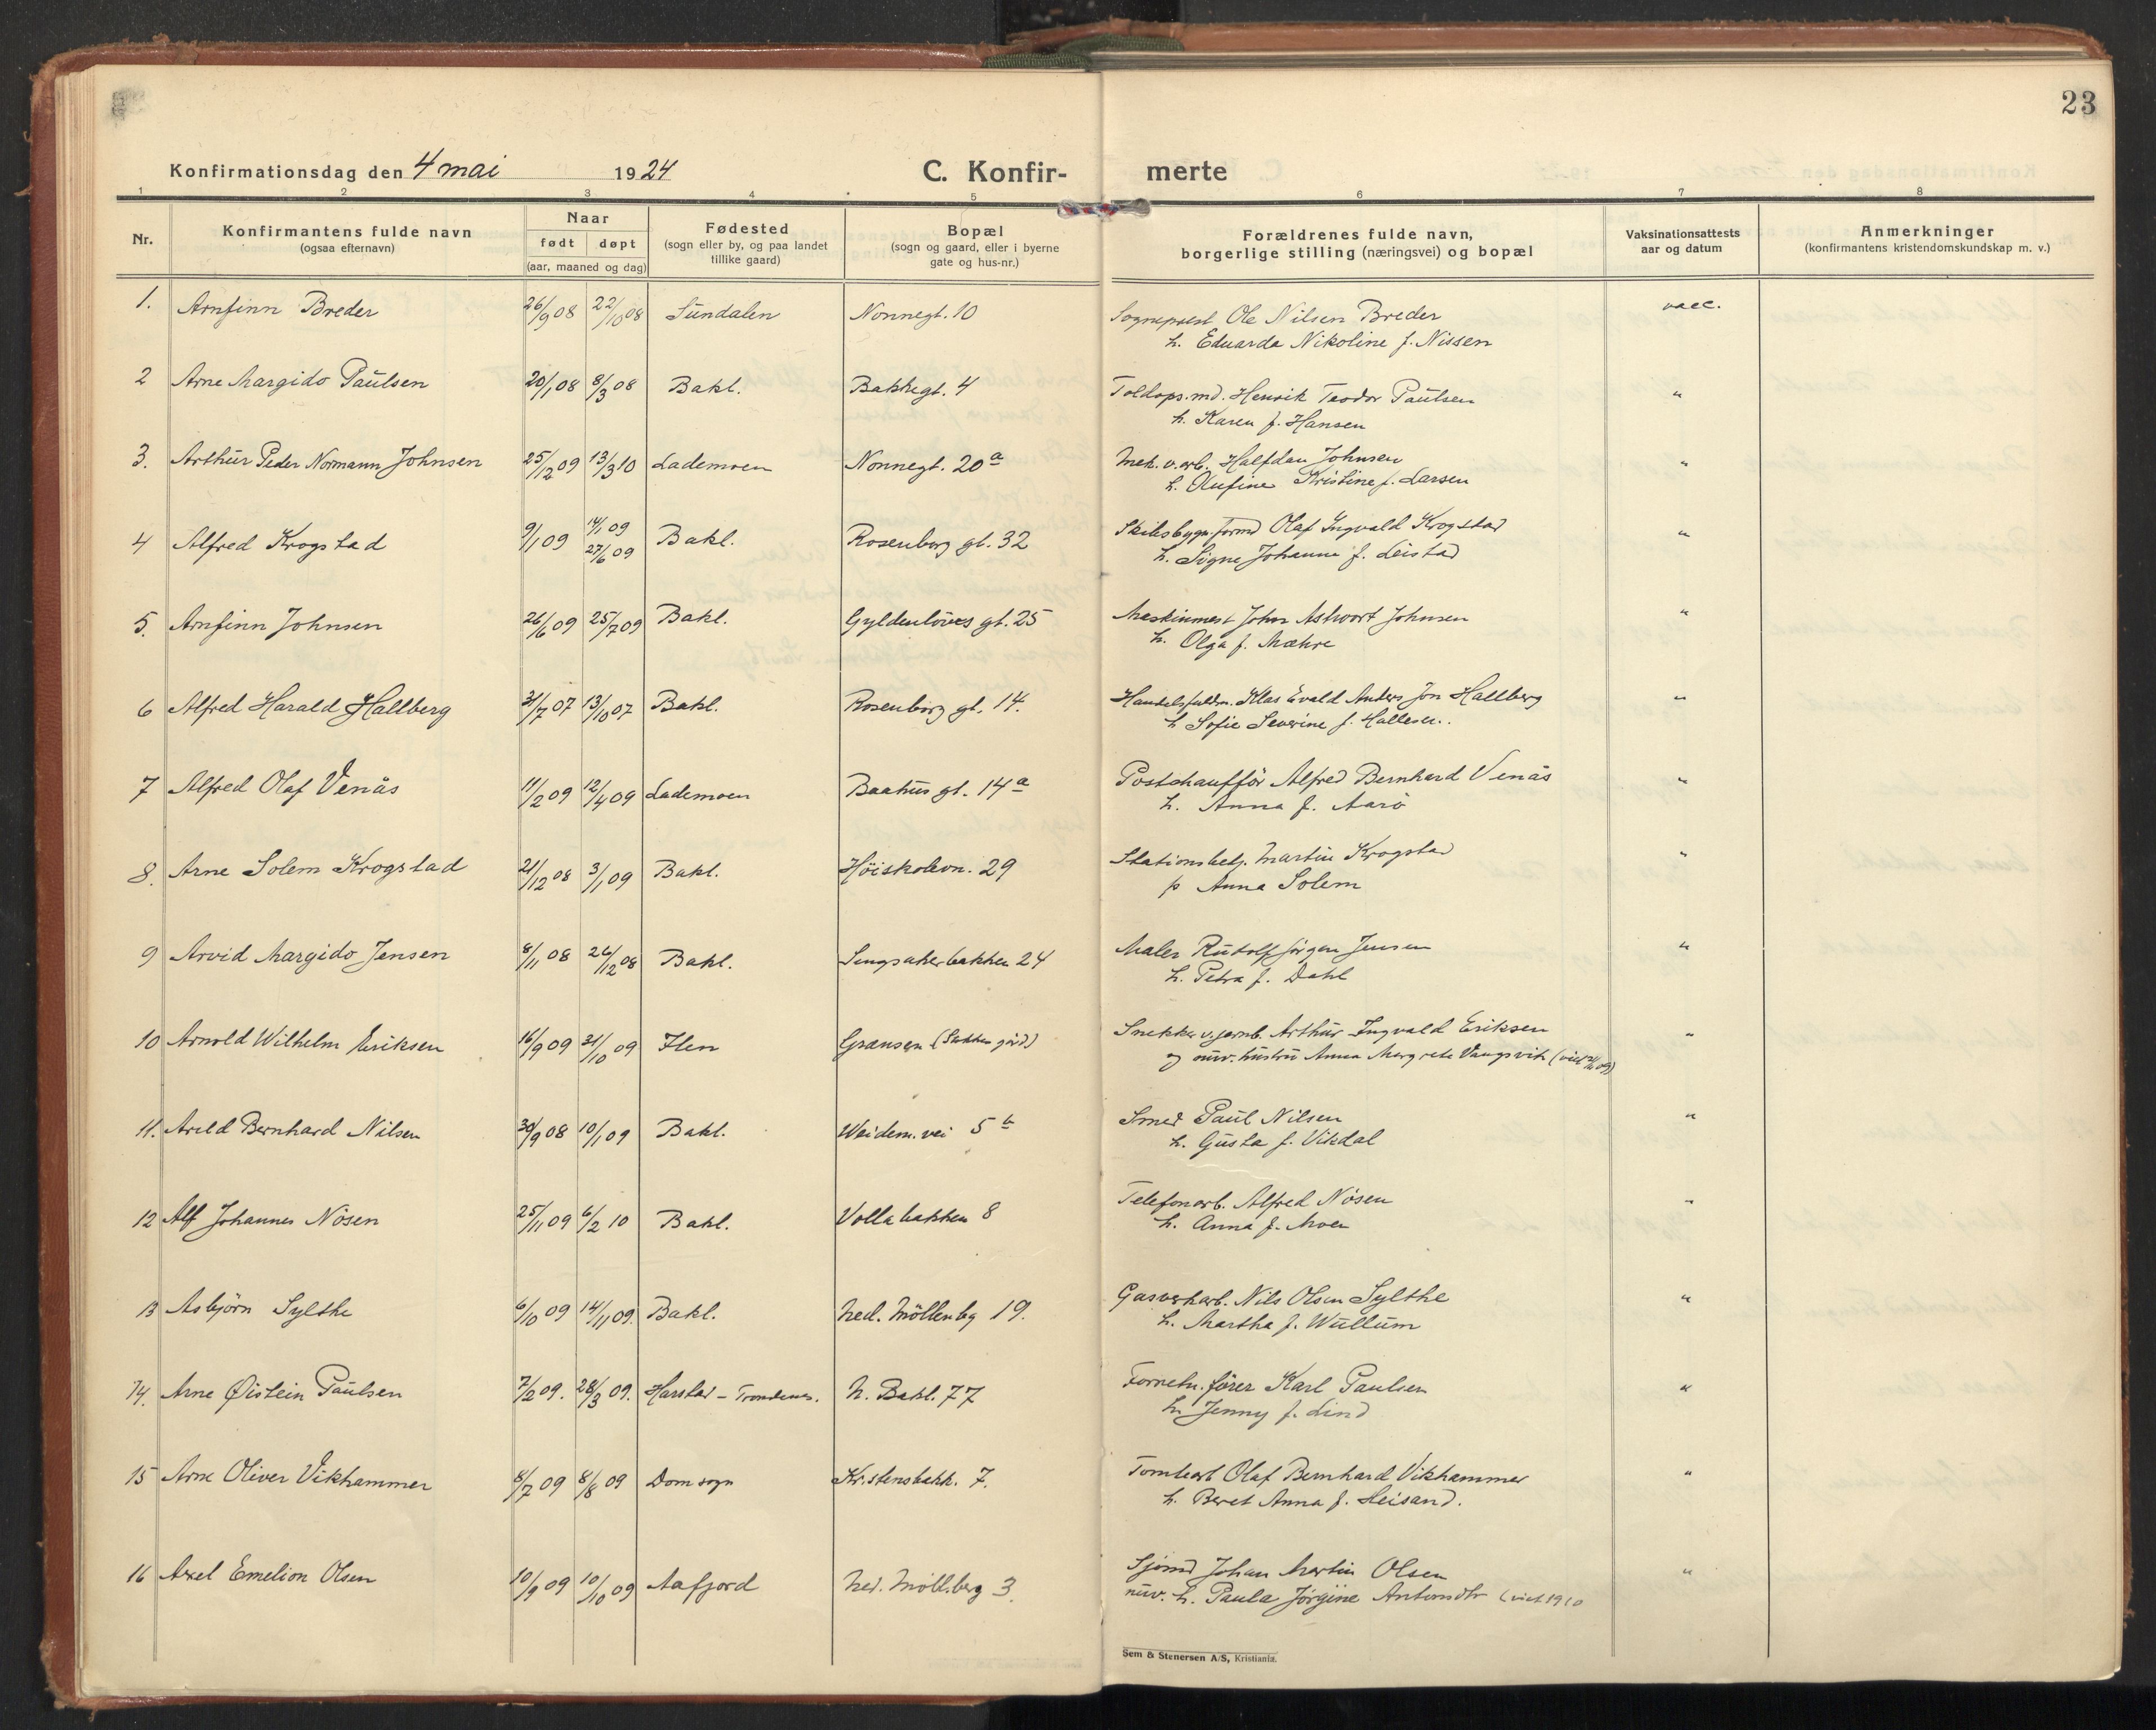 23
Konfirmationsdag den 4 mai 1924 C. Konfir- merte
1 2 3 4 5 6 7 8
Nr. Konfirmantens fulde navn (ogsaa efternavn) Naar født døpt (aar, maaned og dag) Fødested (sogn eller by, og paa landet tillike gaard) Bopæl (sogn og gaard, eller i byerne gate og hus-nr.) Forældrenes fulde navn, borgerlige stilling (næringsvei) og bopæl Vaksinationsattests aar og datum Anmerkninger (konfirmantens kristendomskundskap m. v.)
1. Arnfinn Breder 26/9 08 22/10 08 Sundalen Nonnegt. 10 Sogneprest Ole Nilsen Breder vacc.
h. Eduarda Nikoline f. Nissen
2 Arne Margido Paulsen 20/1 08 8/3 08 Bakl. Bakkegt. 4 Toldops.md. Henrik Teodor Paulsen "
h. Karen f. Hansen
3. Arthur Peder Normann Johnsen 25/12 09 13/3 10 Lademoen Nonnegt. 20a Mek. v. arb. Halfdan Johnsen "
h. Olufine Kristine f. Larsen
4 Alfred Krogstad 9/1 09 14/1 09 27/6 09 Bakl. Rosenborg gt. 32 Skibsbygn.formd Olaf Ingvald Krogstad "
h. Signe Johanna f. Leistad
5. Arnfinn Johnsen 26/6 09 25/7 09 Bakl. Gyldenløves gt. 25 Maskinmest John Johnsen "
h. Olga f. Mæhre
6 Alfred Harald Hallberg 31/7 07 13/10 07 Bakl. Rosenborg gt. 14. Handelsfuldm. Klas Evald Anders Jon Hallberg "
h. Sofie Severine f. Hallesen.
7 Alfred Olaf Venås 11/2 09 12/4 09 Lademoen Baahus gt. 14a Postchauffør Alfred Bernhard Venås "
h. Anna f. Aarö
8. Arne Solem Krogstad 21/12 08 3/1 09 Bakl. Höiskolevn. 29 Stationsbetj. Martin Krogstad "
p Anna Solem
9 Arvid Margido Jensen 8/11 08 26/12 08 Bakl. Singsakerbakken 24 Maler Rudolf Jørgen Jensen "
h. Petra f. Dahl
10 Arnold Wilhelm Eriksen 16/9 09 31/10 09 Ilen Grænsen Snekker v. jernb. Arthur Ingvald Eriksen "
og nuv. hustru Anna Margrete Vangsvik
11. Arild Bernhard Nilsen 30/9 08 10/1 09 Bakl. Weidem. vei 5b Smed Paul Nilsen "
h. Gusta f. Vikdal
12 Alf Johannes Nösen 25/11 09 6/2 10 Bakl. Vollabakken 8 Telefonarb. Alfred Nösen "
h. Anna f. Moen
13 Asbjörn Sylthe 6/10 09 14/11 09. Bakl. Ned. Möllenbg 19. Gasverkarb. Nils Olsen Sylthe "
h. Martha f. Wullum
14. Arne Øistein Paulsen 7/2 09. 28/3 09. Harstad - Trondenes. N. Bakl. 77 Forretn.fører Karl Paulsen "
h. Jenny f. Lind
15 Arne Oliver Vikhammer 8/7 09 8/8 09 Domsogn Kristensbakk. 7. Tomtearb Olaf Bernhard Vikhammer "
h. Beret Anna f. Heisand.
16 Axel Emelion Olsen 10/9 09 10/10 09 Aafjord Ned. Möll.berg 3. Sjømd Johan Martin Olsen "
nuv. h. Paula Jørgine Antonsdtr (viet 1910
Sem & Stenersen A/S, Kristiania.